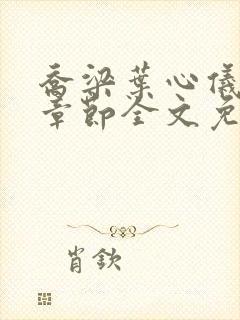 乔梁叶心仪
章节全文免
肖钦